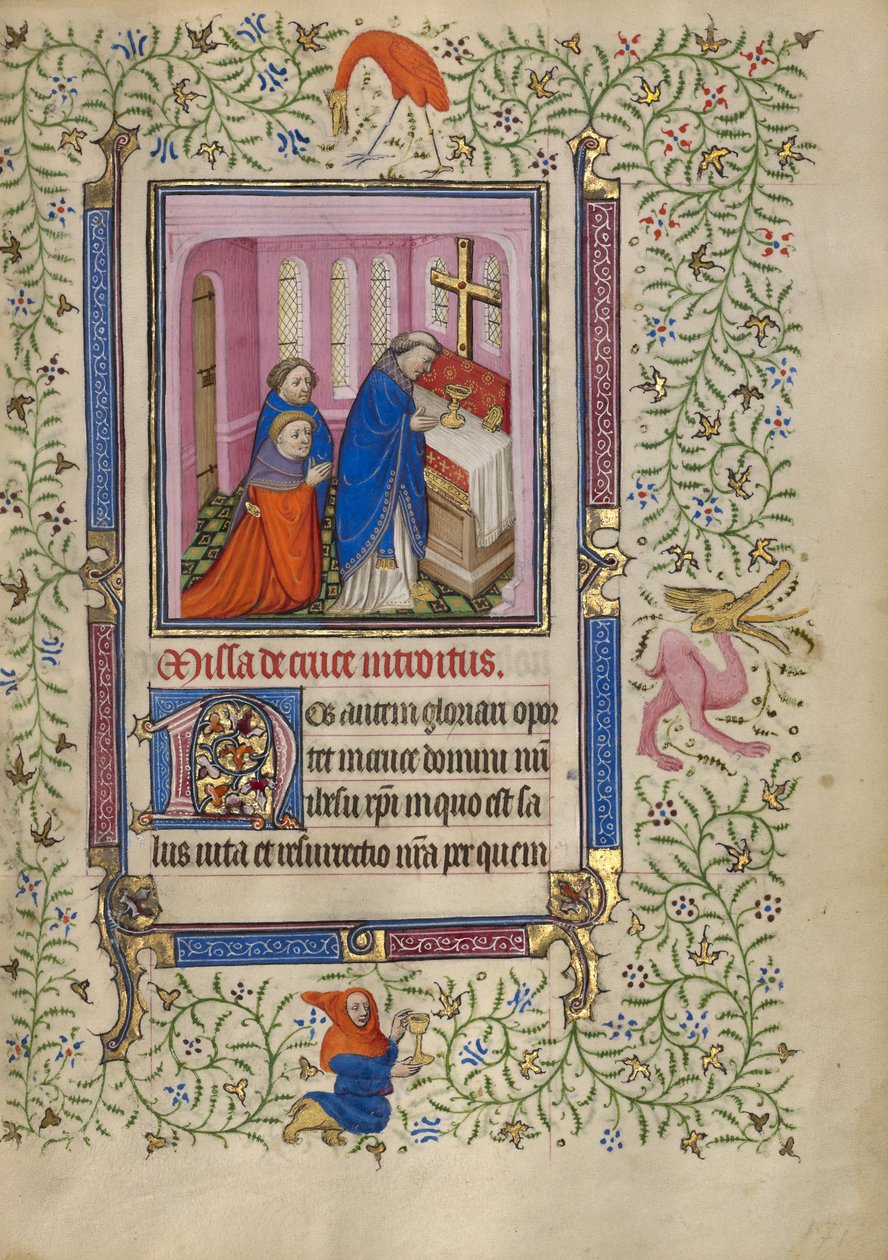 Missa de cruce introitus.
Nos autem gloriari opor
tet in cruce domini nr̅i
ihesu xp̅i in quo est sa
lus uita et resurrectio nr̅a per quem